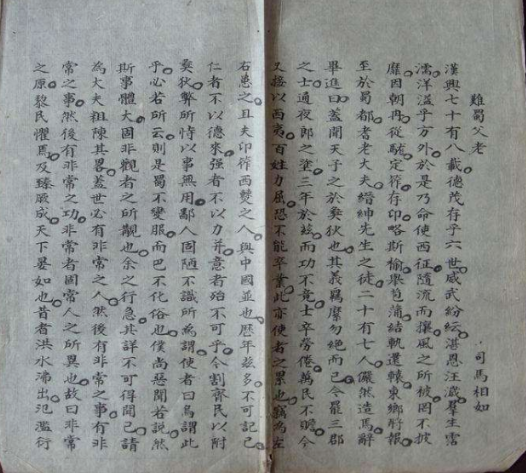 難蜀父老
司馬相如
漢興七十有八載德茂存乎六世威武紛紜湛恩汪濊羣生霑
濡洋溢乎方外於是乃命使西征隨流而攘風之所被罔不披
靡因朝冉從駹定筰存邛略斯榆舉苞蒲結軌還轅東鄉將報
至於蜀都耆老大夫縉紳先生之徒二十有七人儼然造焉辭
畢進曰蓋聞天子之於夷狄也其義羈縻勿絕而已今罷三郡
之士通夜郎之塗三年於茲而功不竟士卒勞倦萬民不贍今
又接以西夷百姓力屈恐不能卒業此亦使者之累也竊為左
右患之且夫邛筰西僰之人與中國並也歷年茲多不可記已
仁者不以德來强者不以力并意者殆不可乎今割齊民以附
夷狄弊所恃以事無用鄙人固陋不識所謂使者曰烏謂此
乎必若所云則是蜀不變服而巴不化俗也僕尚惡聞若說然
斯事體大固非觀者之所覯也余之行急其詳不可得聞已請
為大夫粗陳其畧蓋世必有非常之人然後有非常之事有非
常之事然後有非常之功非常者固常人之所異也故曰非常
之原黎民懼焉及臻厥成天下晏如也昔者洪水沸出氾濫衍